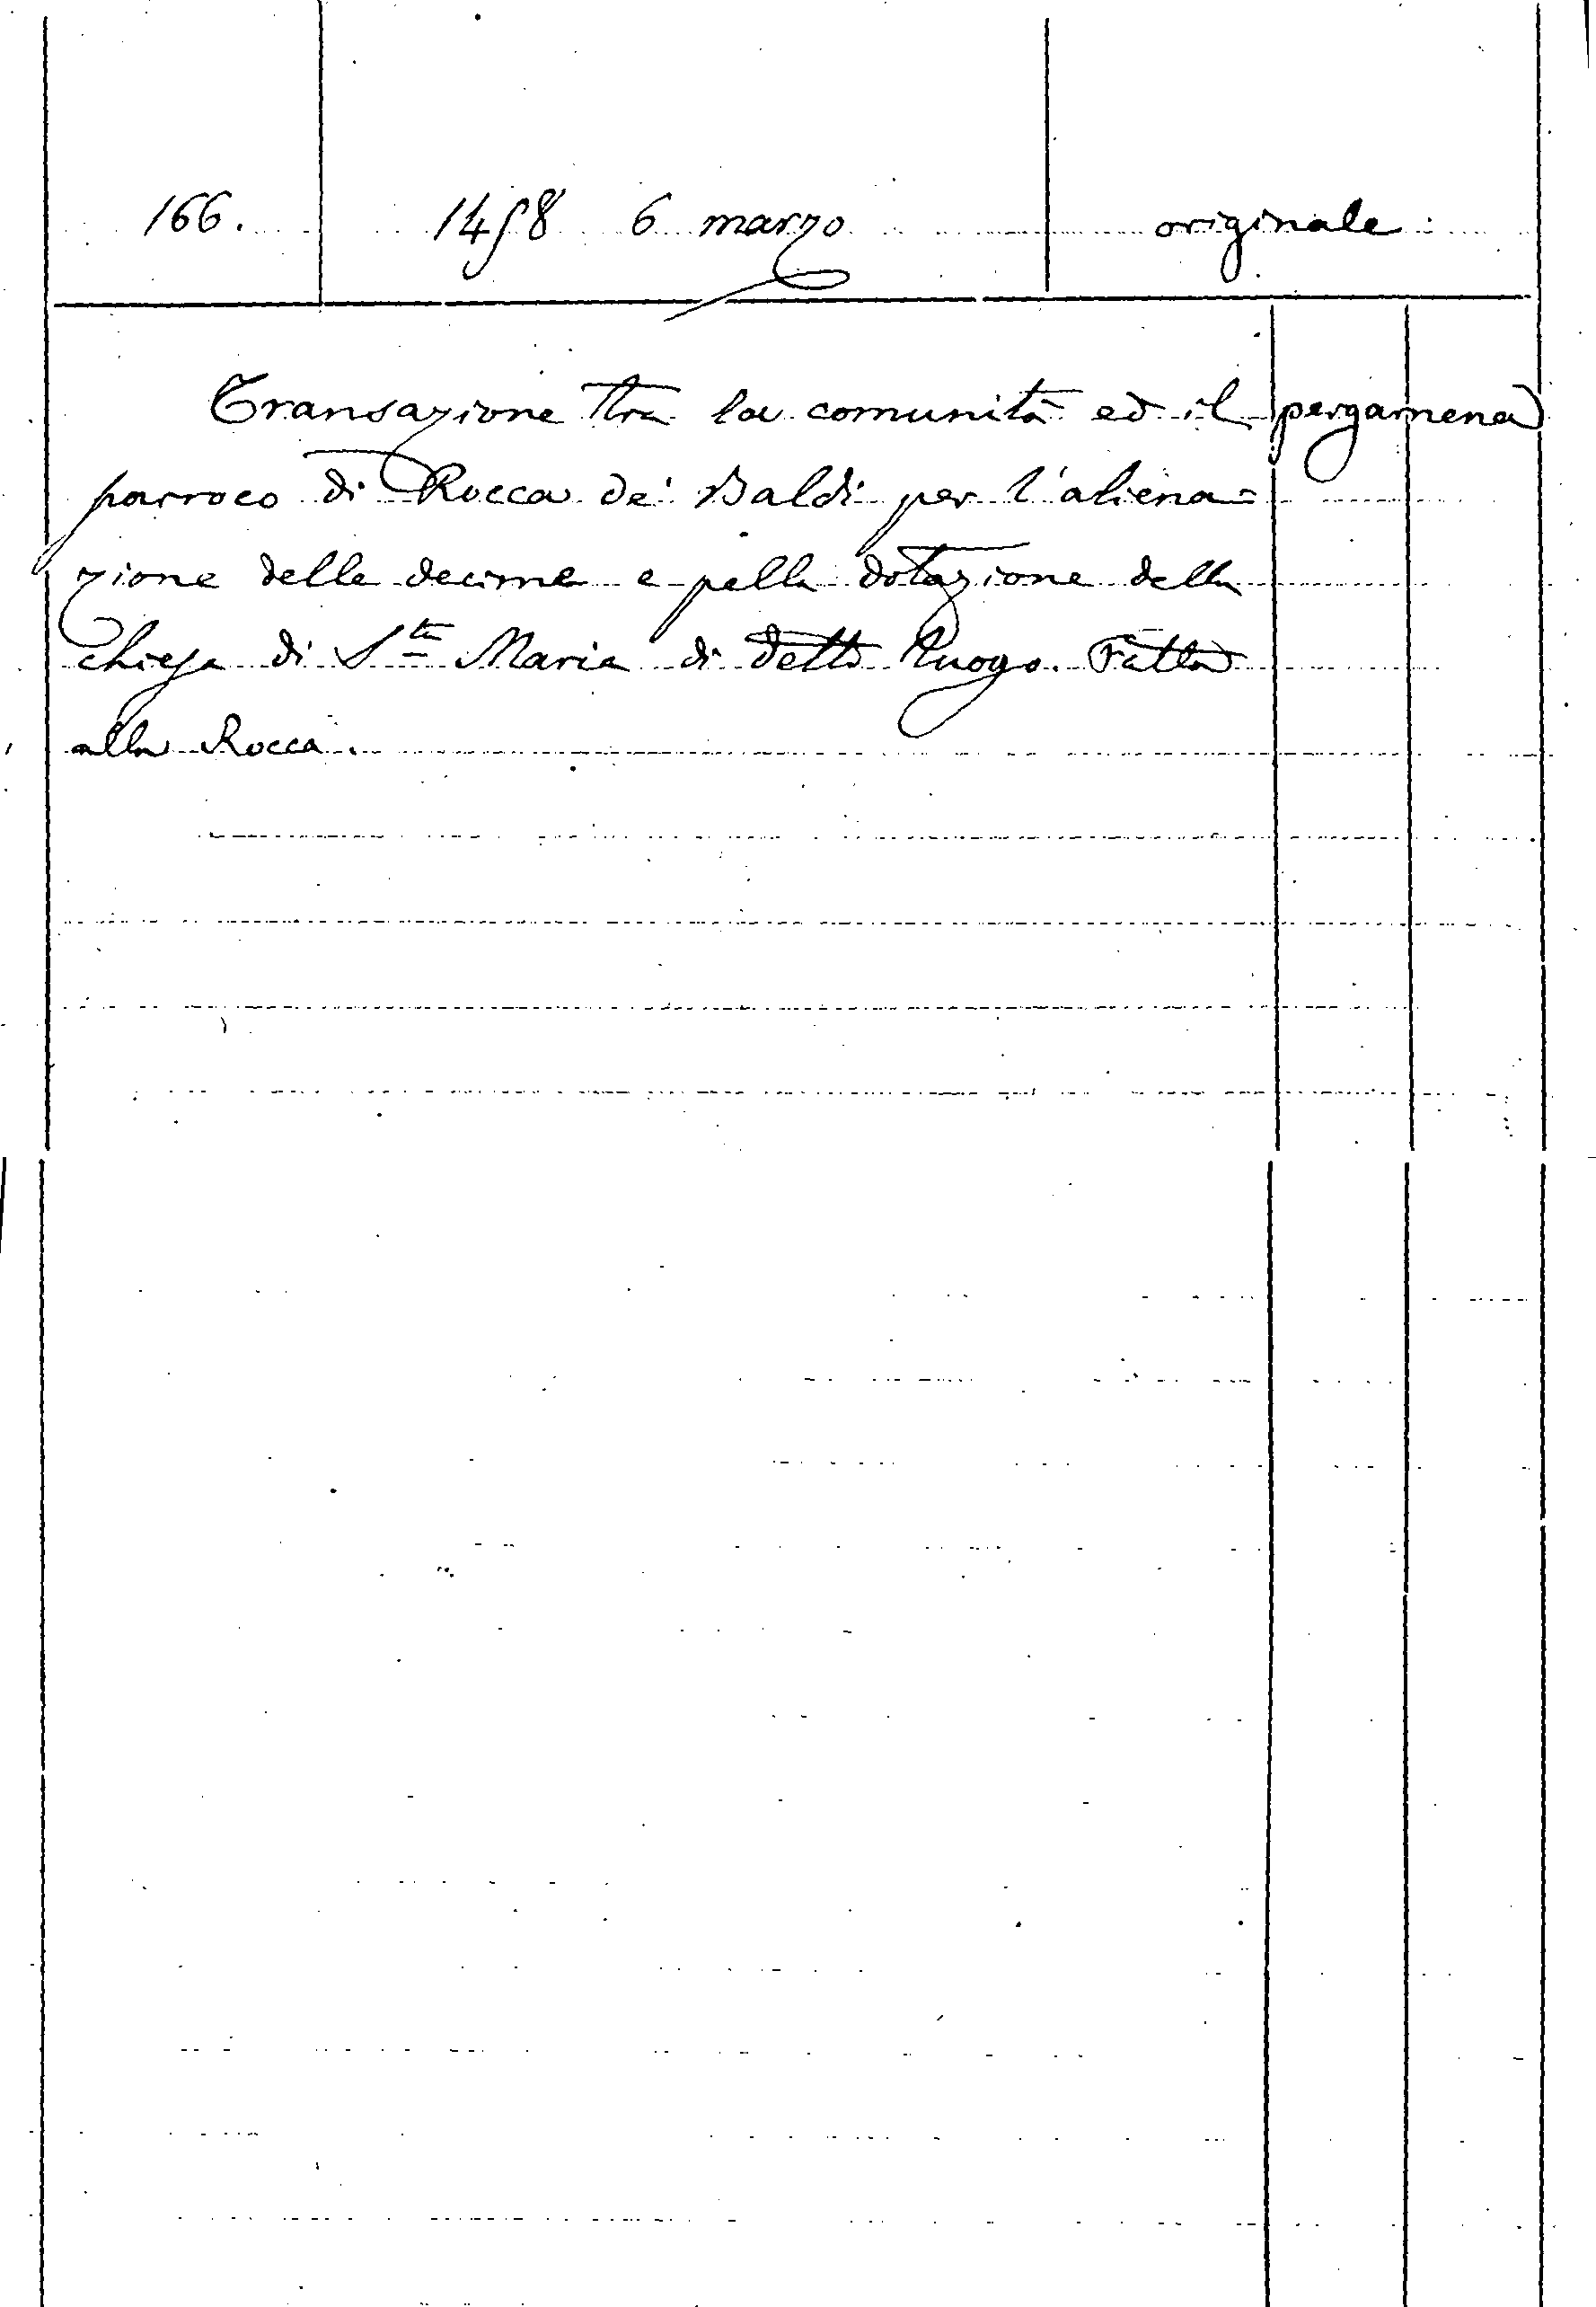 166. 1458 6 marzo originale
Transazione tra la comunità ed il pergamena
parroco di Rocca de' Baldi per l'aliena=
zione delle decime e pella dotazione della
chiesa di S.ta Maria di detto luogo. Fatta
alla Rocca.